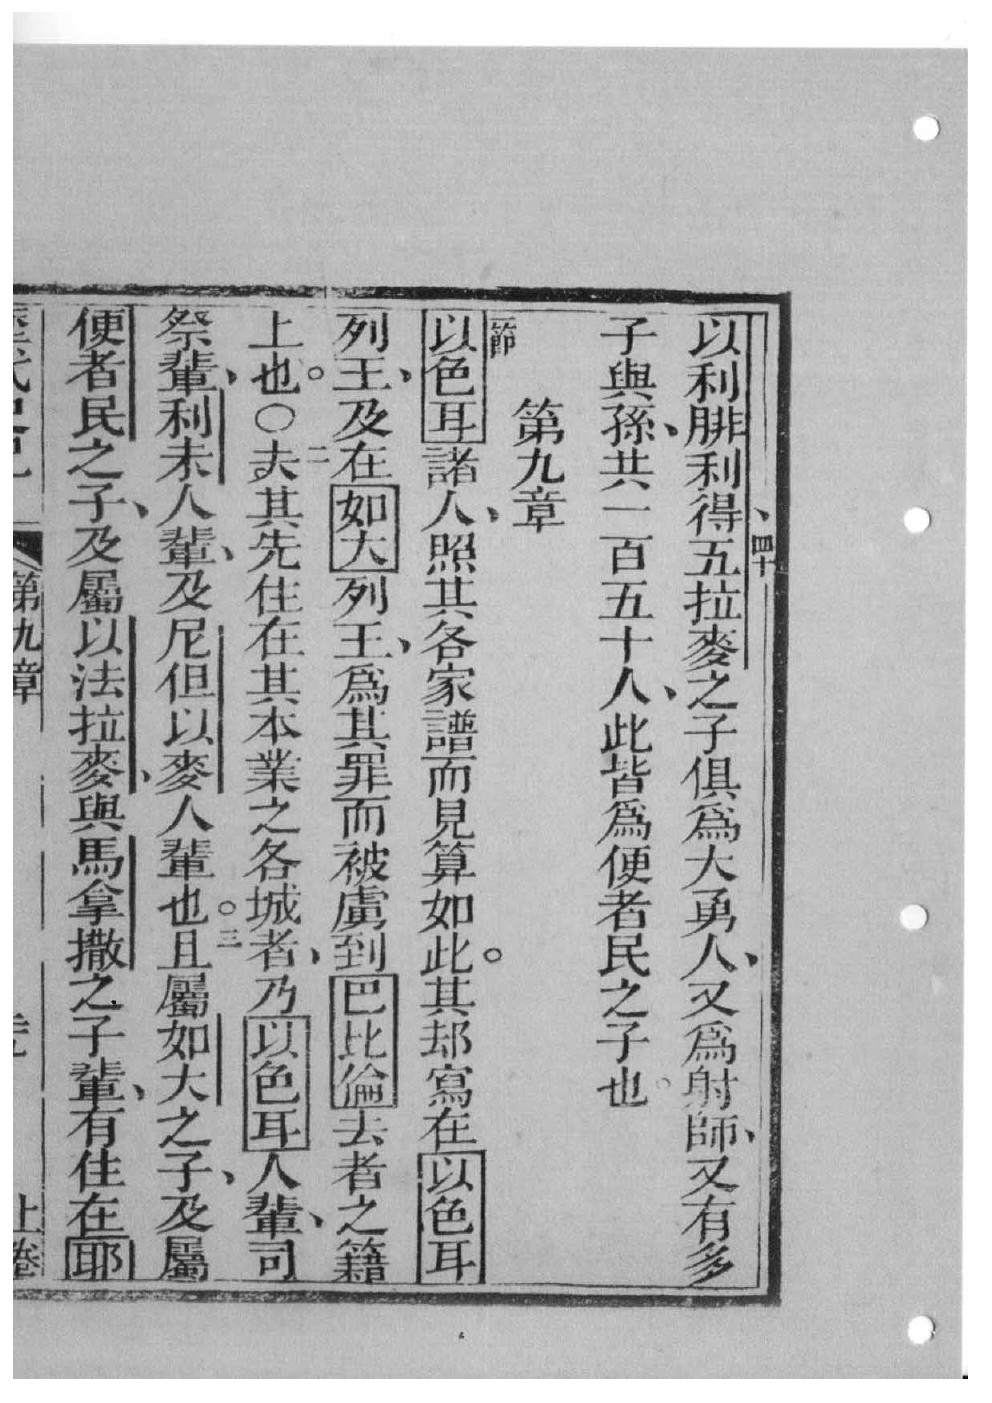 以利腓利得五拉麥之子俱爲大勇人、又爲射師、又有多
、四十
子與孫、共一百五十人、此皆爲便者民之子也。
第九章
一節
以色耳諸人、照其各家譜而見算如此。其却寫在以色耳
列王、及在如大列王、爲其罪而被虜到巴比倫去者之籍
上也。〇二夫其先住在其本業之各城者、乃以色耳人輩、司
祭輩、利未人輩、及尼但以麥人輩也。三且屬如大之子、及屬
便者民之子、及屬以法拉麥、與馬拿撒之子輩、有住在耶
第九章
上卷